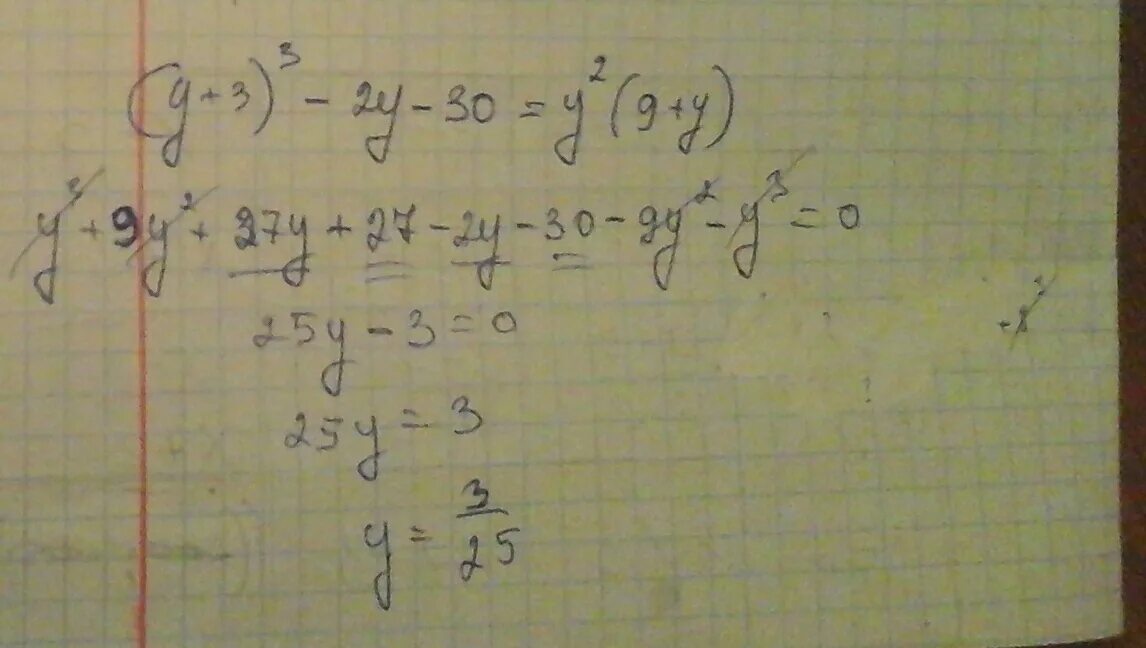 (y+3)³ - 2y - 30 = y² (9+y)
y³ + 9y² + 27y + 27 - 2y - 30 - 9y² - y³ = 0
25y - 3 = 0
25y = 3
y = 3/25